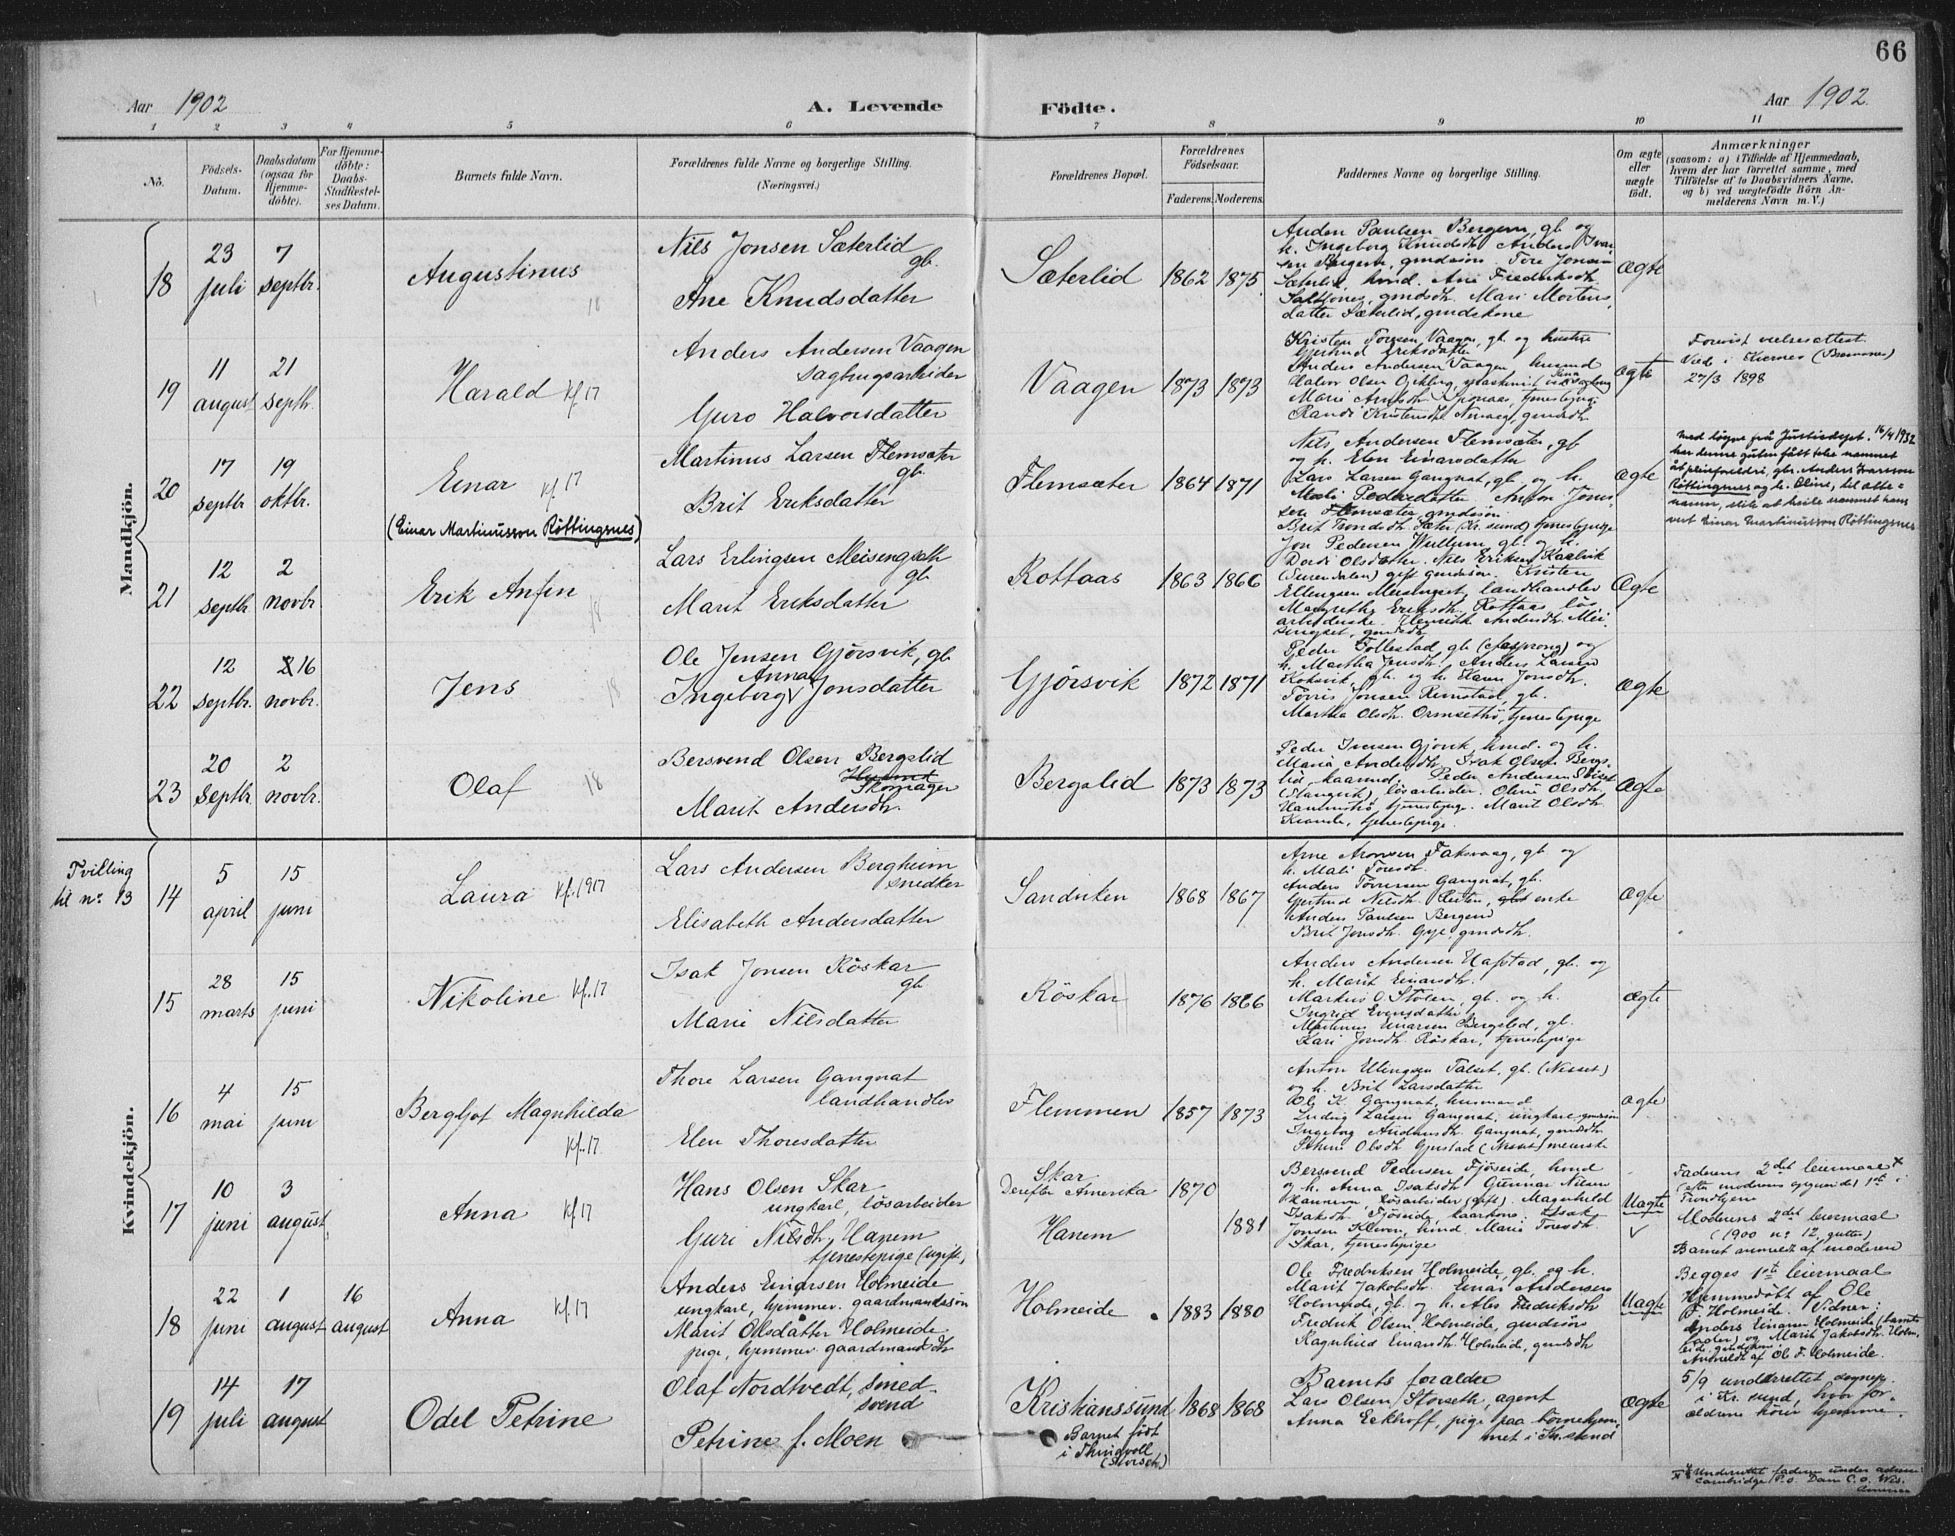 66
Aar 1902
A. Levende
Födte.
Aar 1902.
1 2 3 4 5 6 7 8 9 10 11
No.
Födsels-
Datum.
Daabsdatum
(ogsaa for
Hjemme-
döbte).
For Hjemme-
döbte:
Daabs-
Stadfæstel-
ses Datum.
Barnets fulde Navn.
Forældrenes fulde Navne og borgerlige Stilling.
(Næringsvei.)
Forældrenes Bopæl.
Forældrenes
Födselsaar.
Faderens. Moderens.
Faddernes Navne og borgerlige Stilling.
Om ægte
eller
uægte
födt.
Anmærkninger
(saasom: a) i Tilfælde af Hjemmedaab,
hvem der har forrettet samme, med
Tilföielse af to Daabsvidners Navne,
og b) ved uægtefödte Börn An-
melderens Navn m. V.)
Mandkjön.
18
23
juli
7
septbr.
Augustinus
18
Nils Jonsen Sæterlid
gb.
Ane Knudsdatter
Sæterlid
1862 1875
Anders Paulsen Bergem, gb. og
h. Ingeborg Knudsdtr. Anders Ivar-
sen gmdssön. Tore Jonsen
Sæterlid, husmd. Ane Fredriksdtr.
gmdsdtr. Mari Mortens-
datter Sæterlid, gmdskone
Ægte
19
11
august
21
septbr.
Harald kf 17
Anders Andersen Vaagen
sagbrugsarbeider
Guro Halvorsdatter
Vaagen
1873 1873
Kristen Toresen Vaagen, gb. og hustru
Gjertrud Eriksdatter
Anders Andersen Vaagen husmd
Halvor Olsen
Marie tjenestepige
Randi Kristensdtr gmdsdtr.
Ægte
Forevist vielsesattest
Viede i Kvernes (Bremsnes)
27/3 1898
20
17
septbr
19
oktbr.
Einar kf 17
(Einar Martinusson Röttingsnes)
Martinus Larsen Flemsæter
gb.
Brit Eriksdatter
Flemsæter
1864 1871
Nils Andersen Flemsæter, gb
og h. Elen Einarsdatter
Lars Larsen Gangnat, gb. og h.
Mali Pedersdatter Anton Jons-
sen Flemsæter, gmdssön
Brit Trondsdtr. Sæter (Kr.sund) tjenestepige
Ægte
Med lögne på Justisdept. 16/4 1932
har denne guten fått
gbr. Anders Ivarsson
Röttingsnes og h. Oline, til ætte-
namn, slik at heile namnet hans
vert Einar Martinusson Röttingsnes
21
12
septbr
2
novbr.
Erik Anfin
18
Lars Erlingsen Meisingseth
gb.
Marit Eriksdatter
Rottaas
1863 1866
Jon Pedersen Wullum gb. og h.
Dordi Olsdatter. Nils Eriksen Kaalvik
(Surendalen) gift gmdssön. Kristen
Ellingsen Meisingset, landhandler
Margrethe Eriksdtr. Rottaas lös-
arbeiderske. Henrikke Andersdtr. Mei-
singset, gmdsdtr.
Ægte
22
12
septbr.
16
novbr.
Jens
18
Ole Jensen Gjörsvik, gb.
Anna
Ingeborg Jonsdatter
Gjörsvik
1872 1871
Peder Follestad, gb. (Aasprong) og
h. Martha Jensdtr. Anders Larsen
Koksvik, gb. og h. Karen Jonsdtr.
Törris Jonsen Rimstad, gb.
Martha Olsdtr. Ormsethrö, tjenestepige
Ægte
23
20
septbr
2
novbr.
Olaf
18
Bersvend Olsen Bergslid
Husmd
Skomager
Marit Andersdtr.
Bergslid
1873 1873
Peder Iversen Gjövik, husmd. og h.
Maria Andersdtr. Isak Olsen Bergs-
lid, kaarmd. Peder Andersen
(Stangvik) lösarbeider. Oline Olsdtr.
Hammersrö, tjenestepige. Marit Olsdtr.
Kvande, tjenestepige.
Ægte
Kvindekjön.
Tvilling
til no. 13
14
5
april
15
juni
Laura kf. 1917
Lars Andersen Bergheim
snedker
Elisabeth Andersdatter
Sandviken
1868 1867
Arne Aronsen Faksvaag, gb. og
h. Mali Toresdtr.
Anders Törresen Gangnat, gb.
Gjertrud Nilsdtr. Reiten, enke
Anders Paulsen Bergem
Brit Jonsdtr. Gyl, gmdsdtr.
Ægte
15
28
marts
15
juni
Nikoline kf. 17
Isak Jonsen Röskar
gb.
Marie Nilsdatter
Röskar
1876 1866
Anders Andersen Hafstad, gb. og
h. Marit Einarsdtr.
Markus O. Stölen, gb. og h.
Ingrid Evensdatter
Martinus Einarsen Bergslid, gb.
Kari Jonsdtr. Röskar, tjenestepige
Ægte
16
4
mai
15
juni
Bergljot Magnhilda
kf. 17
Thore Larsen Gangnat
landhandler
Elen Thoresdatter
Flemmen
1857 1873
Anton Ellingsen Talset, gb. (Nesset)
og h. Brit Larsdatter
Ole K. Gangnat, husmand
Ludvig Larsen Gangnat, ungkarl, gmdssön
Ingeborg Andersdtr. Gangnat, gmdsdtr.
Petrine Olsdtr. Gjerstad (Nesset) meierske
Ægte
17
10
juni
3
august
Anna kf 17
Hans Olsen Skar
ungkarl, lösarbeider
Guri Nilsdtr. Hanem
tjenestepige (ugift)
Skar
Derefter Amerika
Hanem
1870
1881
Bersvend Pedersen Fjöseide, husmd
og h. Anna Isaksdtr. Gunnar Nilsen
Hannem lösarbeider (gift). Magnhild
Isaksdtr. Fjöseide kaarkone. Isak
Jonsen Kleven, husmd. Marie Toresdtr.
Skar, tjenestepige
Uægte
Faderens 2det leiermaal x
(efter moderens opgivende) 1ste i
Trondhjem
Moderens 2det leiermaal
(1900 no. 12, gutter)
Barnet anmeldt af moderen
18
22
juni
1
august
16
august
Anna kf. 17
Anders Einarsen Holmeide
ungkarl, hjemmev. gaardmandssön
Marit Olsdatter Holmeide
pige, hjemmev. gaardmandsdtr
Holmeide
1883 1880
Ole Fredriksen Holmeide, gb. og h.
Marit Jakobsdtr. Einar Andersens
Holmeide, gb. og h. Ales Fredriksdtr
Fredrik Olsen Holmeide, gmdssön
Ragnhild Einarsdtr. Holmeide, gmdsdtr
Uægte
Begges 1ste leiermaal
Hjemmedöbt af Ole
F. Holmeide. Vidner:
Anders Einarsen Holmeide (barnets
fader) og Marit Jakobsdtr. Holm-
eide, gmdskone.
Anmeldt af Ole F. Holmeide.
19
14
juli
17
august
Odel Petrine
Olaf Nordtvedt, smed-
svend
Petrine f. Moen
Kristianssund
Barnet födt
i Thingvoll
1868 1868
Barnets foraldre
Lars Olsen Storseth, agent
Anna Eckhoff, pige paa börnehjem-
met i Kr.sund
Ægte
5/9 underrettet sognepr.
i Kr.sund, hvor for-
ældrene hörer hjemme.
x Underrettet faderen under adresse:
Cambridge P.o. Dane C.o. Wis.
America